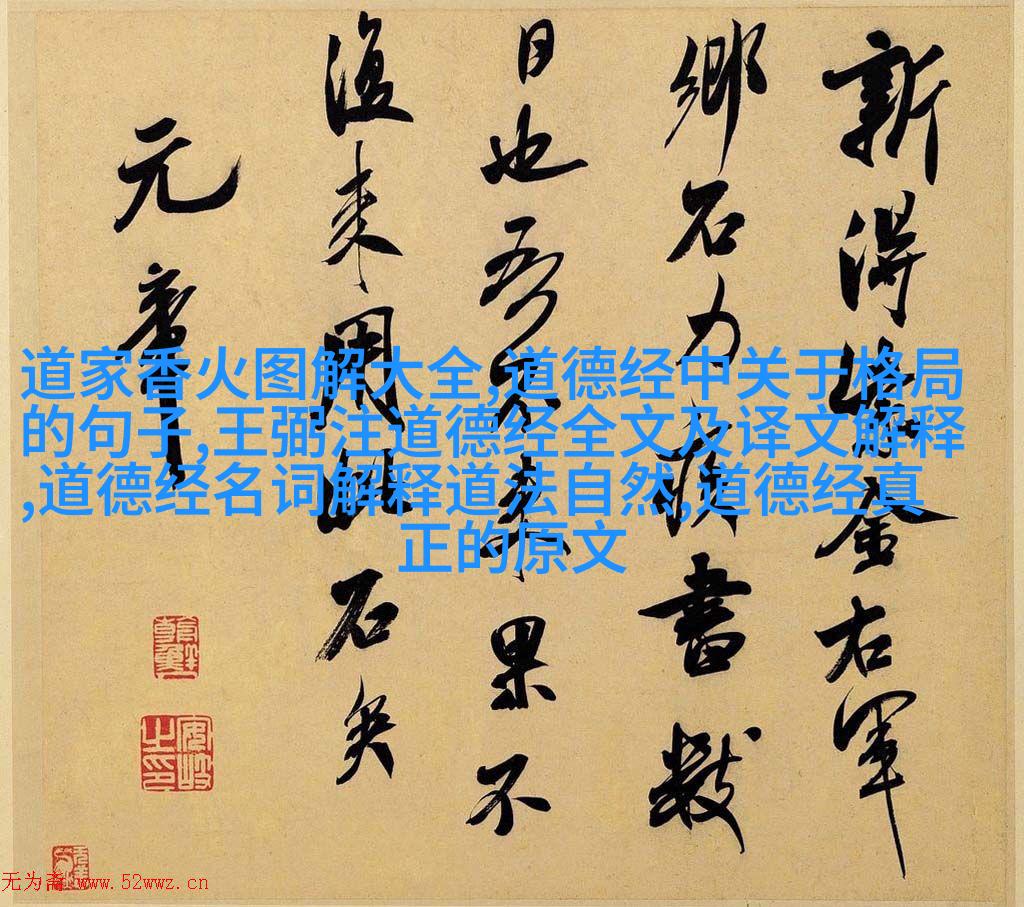 新得紫金右軍
鄉石力疾書數
日也吾不來果不
復來用此石矣
元章
道家香火图解大全,道德经中关于格局
的句子,王弼注道德经全文及译文解释
,道德经名词解释道法自然,道德经真
正的原文
安岐之印
无为斋 www.52wwz.cn